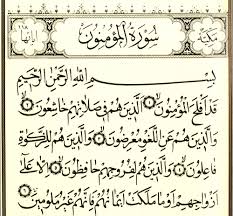 سورة المؤمنون
بسم الله الرحمن الرحيم
قد أفلح المؤمنون ۝ الذين هم في صلاتهم خاشعون ۝
والذين هم عن اللغو معرضون ۝ والذين هم للزكوة
فاعلون ۝ والذين هم لفروجهم حافظون ۝ إلا على
أزواجهم أو ما ملكت أيمانهم فإنهم غير ملومين ۝